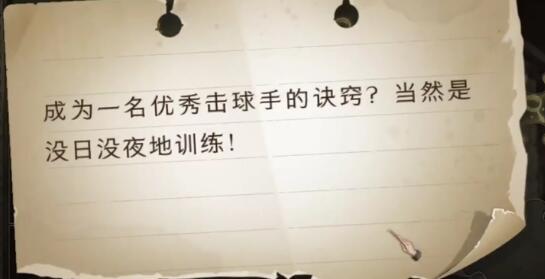 成为一名优秀击球手的诀窍？当然是
没日没夜地训练！